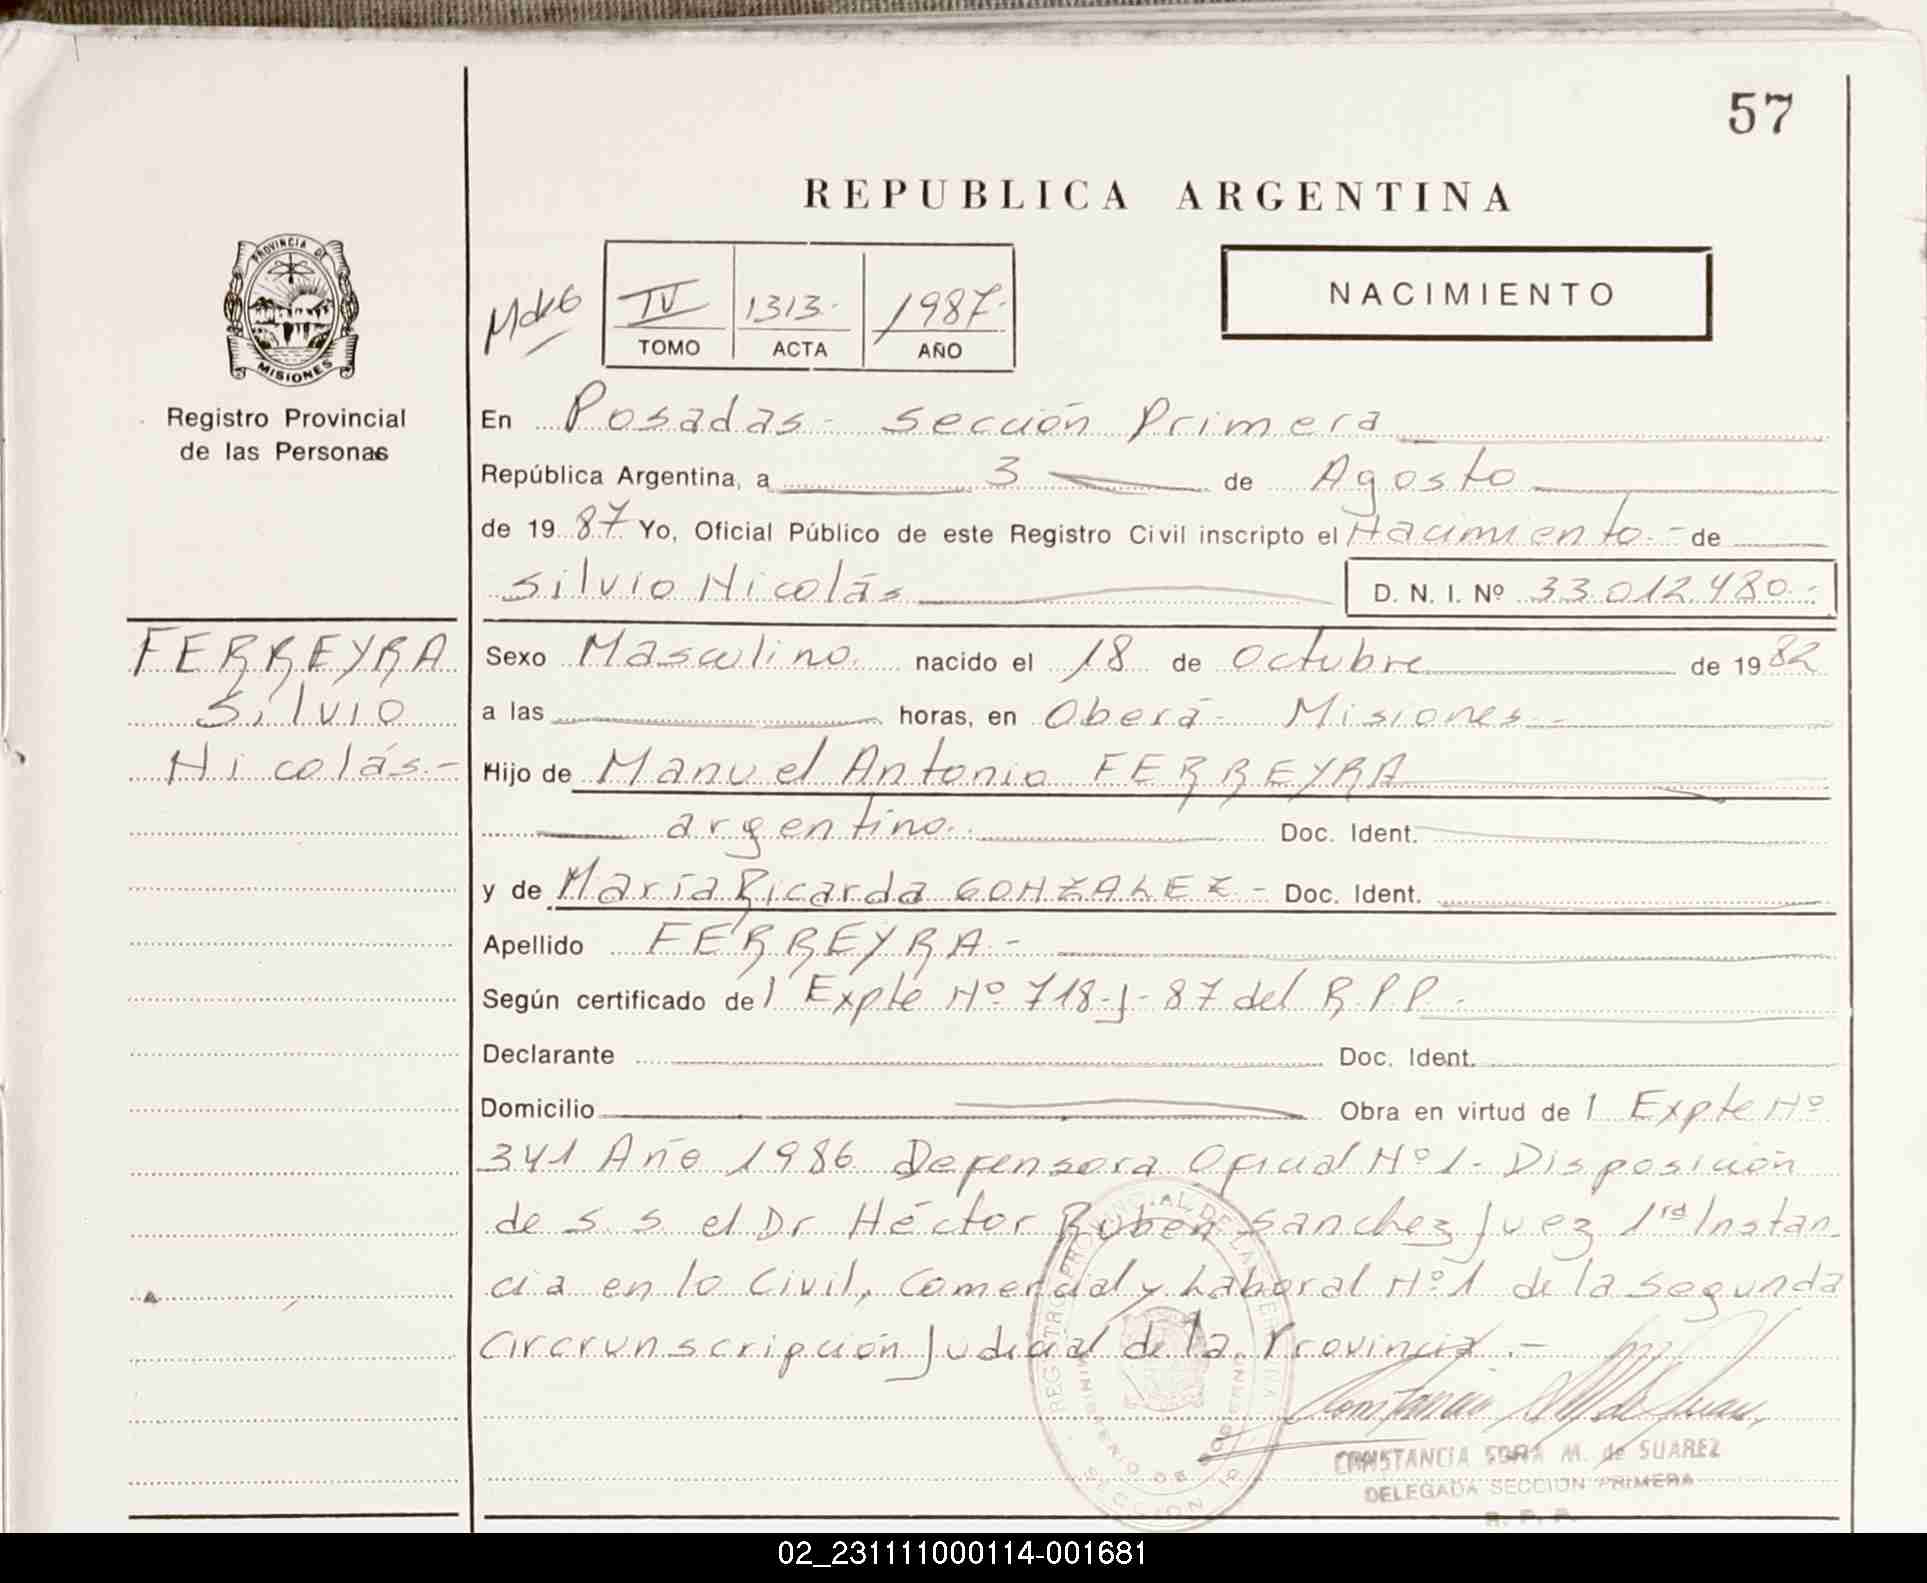 57
REPUBLICA ARGENTINA
PROVINCIA DE
MISIONES
Registro Provincial
de las Personas
IV 1313.- 1987.-
TOMO ACTA AÑO
NACIMIENTO
En Posadas - Sección Primera
República Argentina, a 3 de Agosto
de 1987 Yo, Oficial Público de este Registro Civil inscripto el Nacimiento.- de
Silvio Nicolás D. N. I. Nº 33.012.480.-
FERREYRA
Silvio
Nicolás.-
Sexo Masculino. nacido el 18 de Octubre de 1982
a las horas, en Oberá - Misiones -
Hijo de Manuel Antonio FERREYRA
argentino. Doc. Ident.
y de María Ricarda GONZALEZ.- Doc. Ident.
Apellido FERREYRA.-
Según certificado de/ Expte Nº 718-J-87 del R.P.P.-
Declarante Doc. Ident.
Domicilio Obra en virtud de / Expte Nº
341 Año 1986 Defensora Oficial Nº 1 - Disposición
de S. S. el Dr Héctor Ruben Sanchez Juez 1ra Instan
cia en lo Civil, Comercial y Laboral Nº 1 de la Segunda
Circrunscripción Judicial de la Provincia.-
CONSTANCIA SORA M. de SUAREZ
DELEGADA SECCION PRIMERA
R. P. P.
02_231111000114-001681